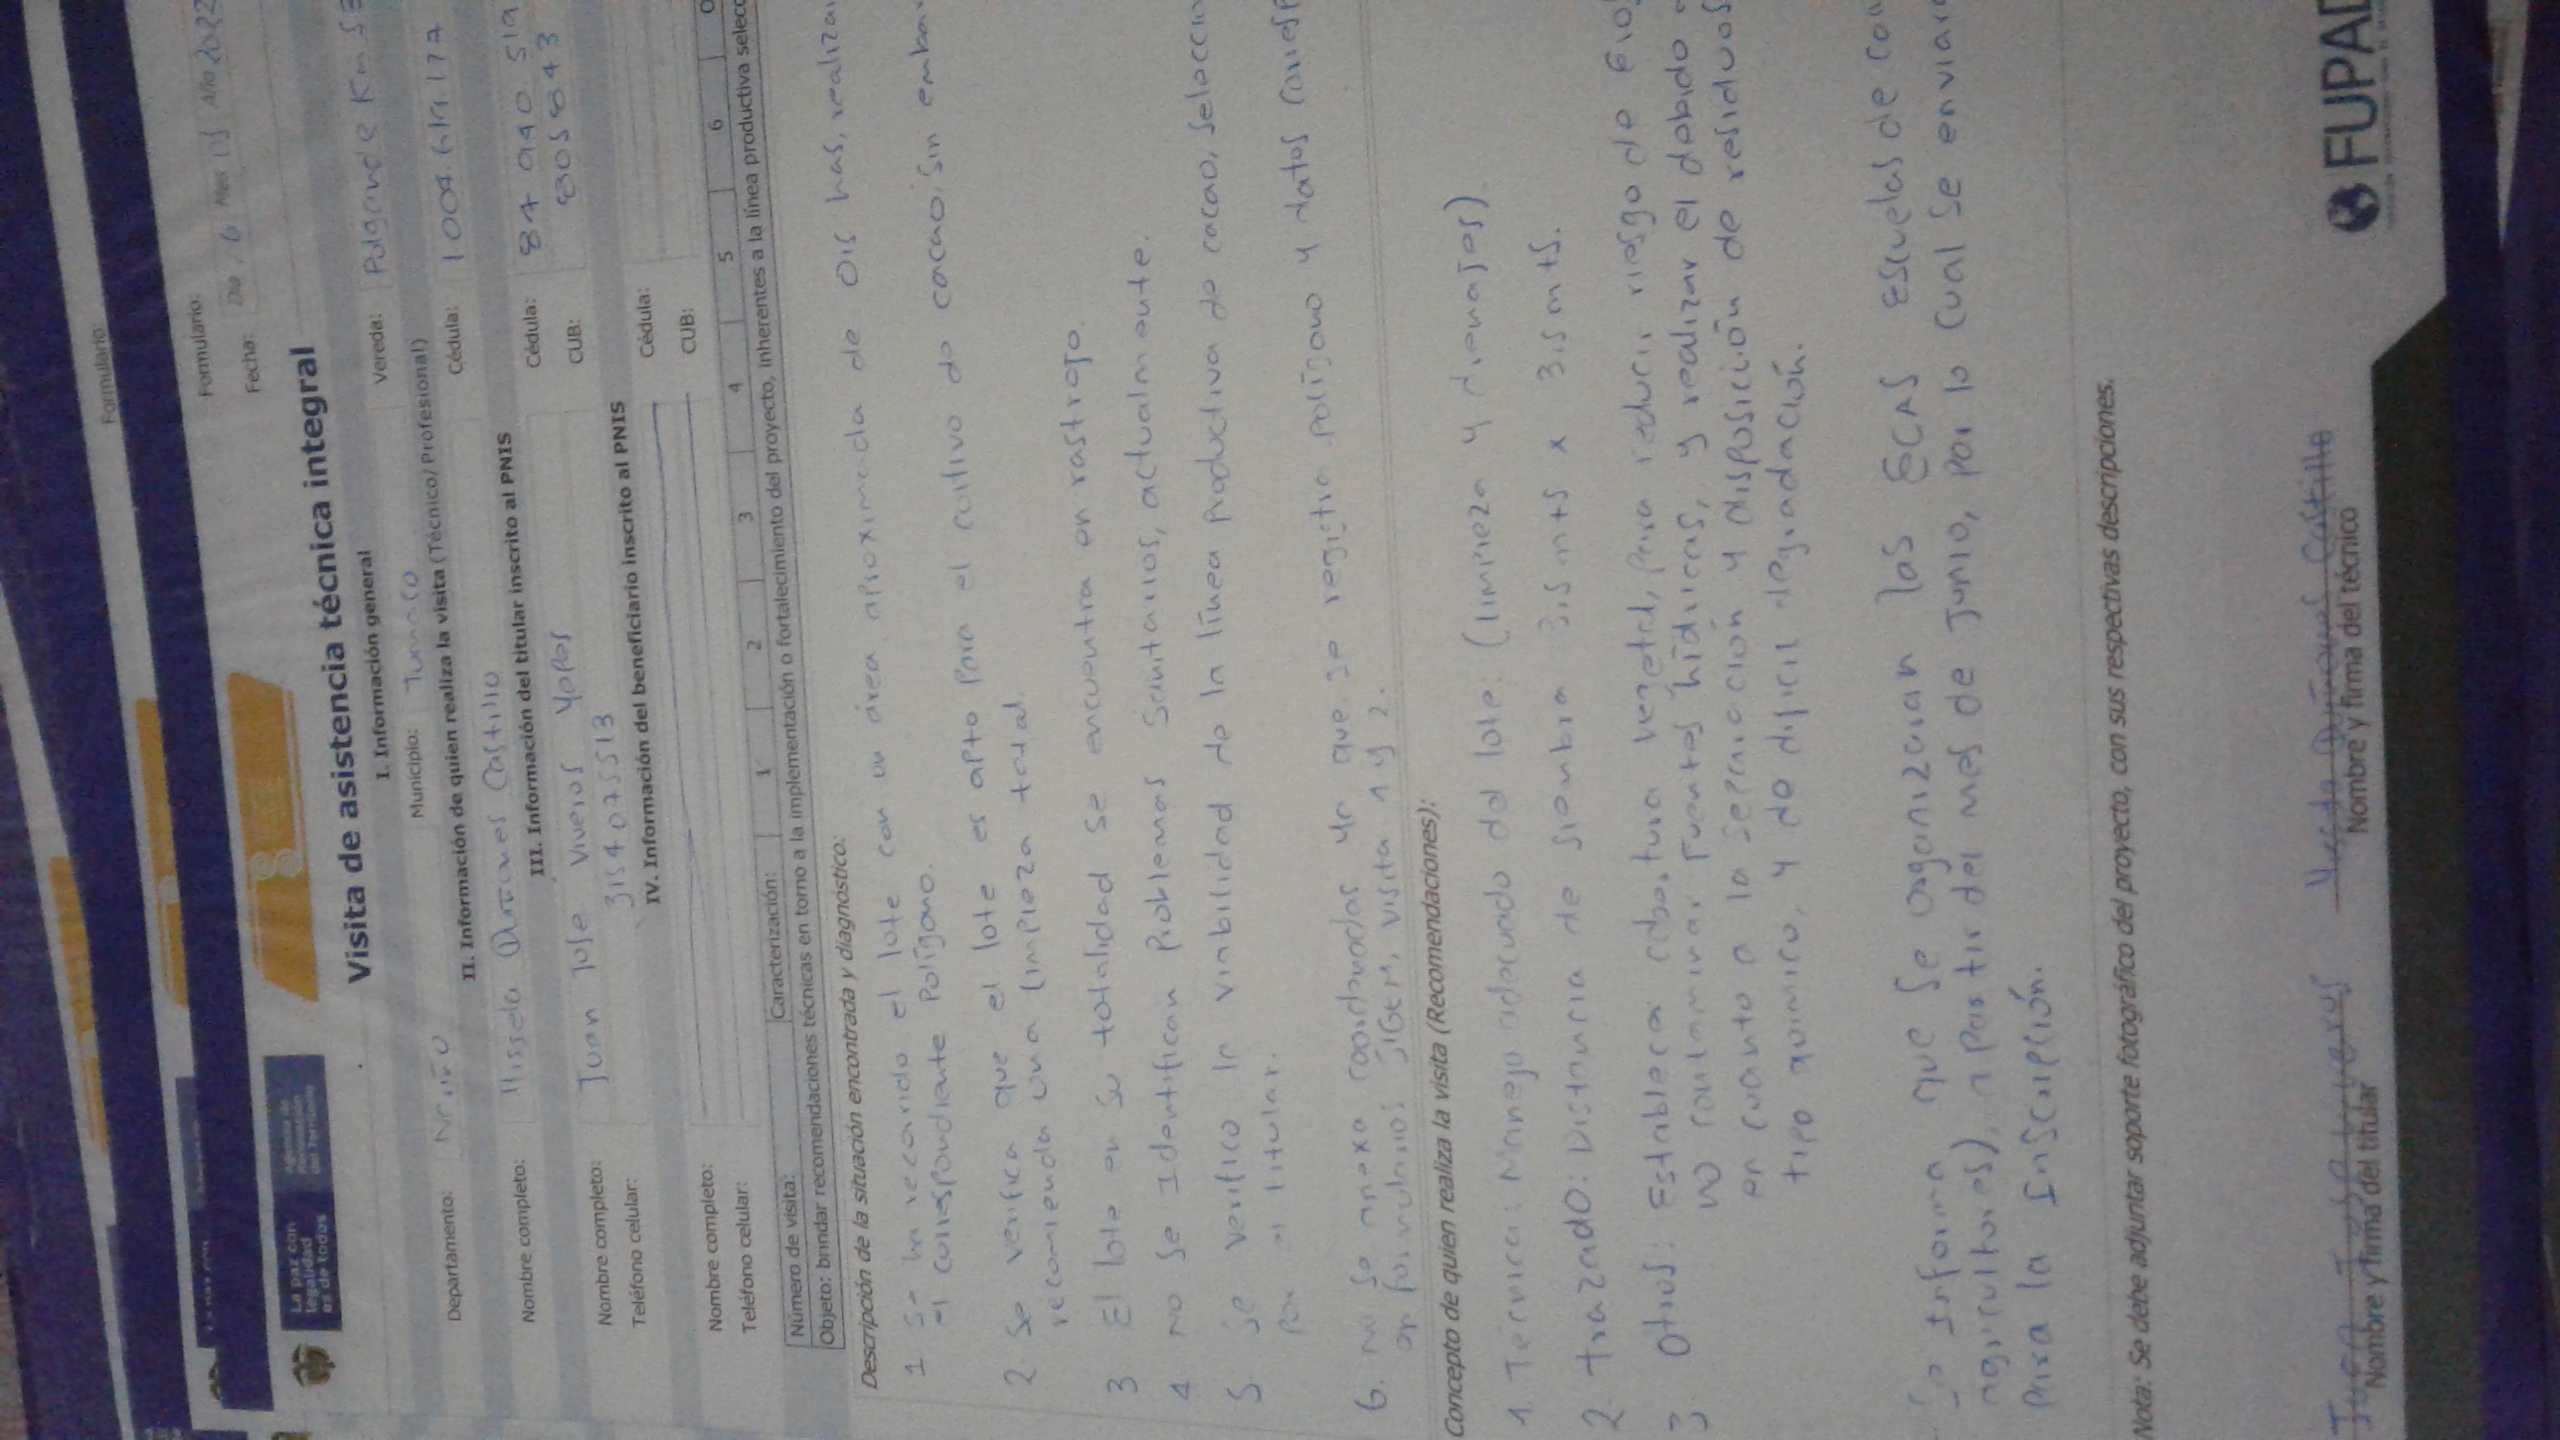 Formulario:
Formulario:
Fecha: Dia 16 Mes 05 Año 2022
La paz con
legalidad
es de todos
Agencia de
Renovación
del Territorio
Visita de asistencia técnica integral
I. Información general
Departamento: Nariño Municipio: Tumaco Vereda: Pulgande Km 53
II. Información de quien realiza la visita (Técnico/Profesional)
Nombre completo: Castillo Cédula:
III. Información del titular inscrito al PNIS
Nombre completo: Juan Jose Viveros Yepes Cédula:
Teléfono celular: 3154075513 CUB: 8058843
IV. Información del beneficiario inscrito al PNIS
Nombre completo: Cédula:
Teléfono celular: CUB:
Número de visita: Caracterización: 1 2 3 4 5 6
Objeto: brindar recomendaciones técnicas en torno a la implementación o fortalecimiento del proyecto, inherentes a la línea productiva
Descripción de la situación encontrada y diagnóstico:
1 Se ha recorrido el lote con un área aproximada de 0,5 has, realiza
el correspondiente Polígono.
2 Se verifica que el lote es apto para el cultivo de cacao, sin embar
recomienda una limpieza total.
3 El lote en su totalidad se encuentra en rastrojo.
4 No se Identifican Problemas Sanitarios, actualmente.
5 Se verifico la viabilidad de la línea Productiva de cacao,
Por el titular.
6. no se anexa coordenadas ya que se registra polígono y datos
en formularios SIGEM, visita 1 y 2.
Concepto de quien realiza la visita (Recomendaciones):
1. Técnica: Manejo adecuado del lote: (limpieza y drenajes)
2. trazado: Distancia de siembra 3,5 mts x 3,5 mts.
3. Otros: Establecer cobertura vegetal, para reducir riesgo de
no contaminar fuentes hídricas, y realizar el debido
en cuanto a la separación y disposición de residuos
tipo químico, y de dificil degradación.
Se Informa que se organizaran las ECAS Escuelas de
agricultores), a partir del mes de Junio, Por lo cual se enviar
Para la Inscripción.
Nota: Se debe adjuntar soporte fotográfico del proyecto, con sus respectivas descripciones.
Juan Jose Viveros Castillo
Nombre y firma del titular Nombre y firma del técnico
FUPAD